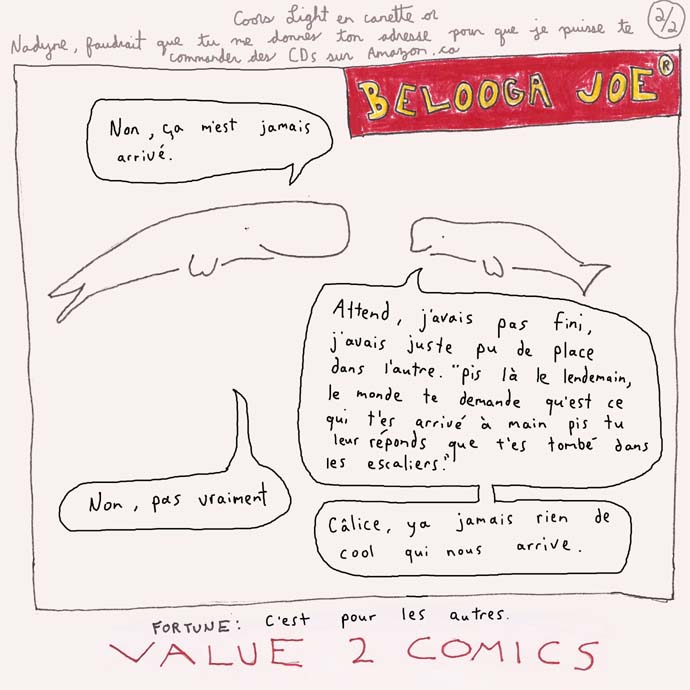 Coors Light en canette or
Nadyne, faudrait que tu me donnes ton adresse pour que je puisse te
commander des CDs sur Amazon.ca
2/2
BELOOGA JOE®
Non, ça m'est jamais
arrivé.
Attend, j'avais pas fini,
j'avais juste pu de place
dans l'autre. "pis là le lendemain,
le monde te demande qu'est ce
qui t'es arrivé à main pis tu
leur réponds que t'es tombé dans
les escaliers."
Non, pas vraiment
Câlice, ya jamais rien de
cool qui nous arrive.
FORTUNE: C'est pour les autres.
VALUE 2 COMICS